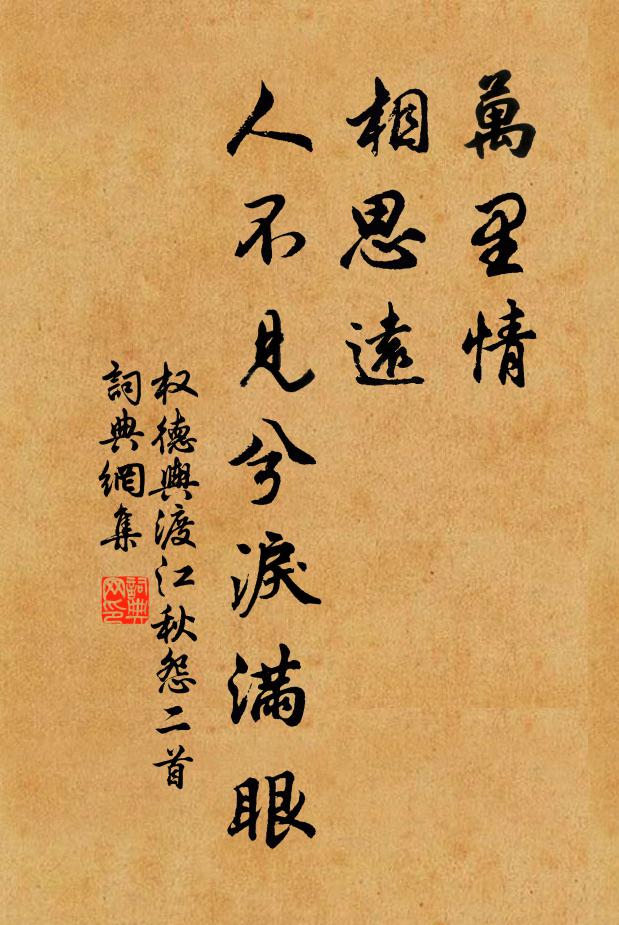 萬里情
相思遠
人不見兮淚满眼
权德輿渡江秋怨二首
詞典網集
詞典
网印